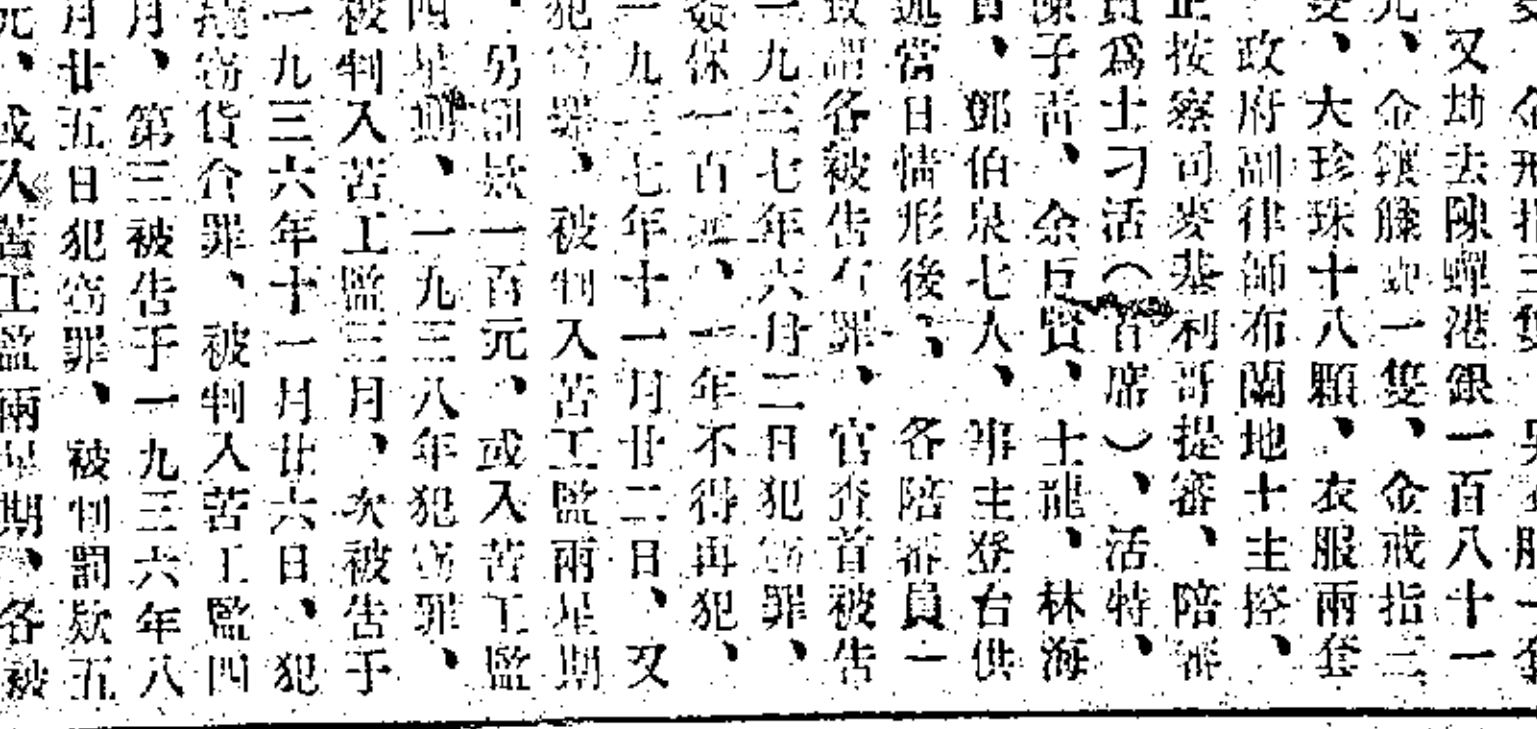 金戒指三隻
又劫去陳蟬港銀一百八十一
元、金鑲籐 一隻、金戒指三
、大珍珠十八顆、衣服兩套
政府副律師布蘭地士主控、
正按察司麥基利哥提審、陪審
員爲士刁活（首席）、活特、
陳子靑、余巨賢、士龍、林海
、鄧伯泉七人、事主登台供
述當日情形後、各陪審員一
致謂各被告有罪、官查首被告
一九三七年六月二日犯窃罪、
簽保一百元、一年不得再犯、
一九三七年十一月廿二日、又
犯窃罪、被判入苦工監兩星期
、另罰欵一百元、或入苦工監
四星期、一九三八年犯窃罪、
被判入苦工監三月、次被告于
一九三六年十一月廿六日、犯
窃貨介罪、被判入苦工監四
月、第三被告于一九三六年八
月廿五日犯窃罪、被判罰欵五
元、或入苦工監兩星期、各被